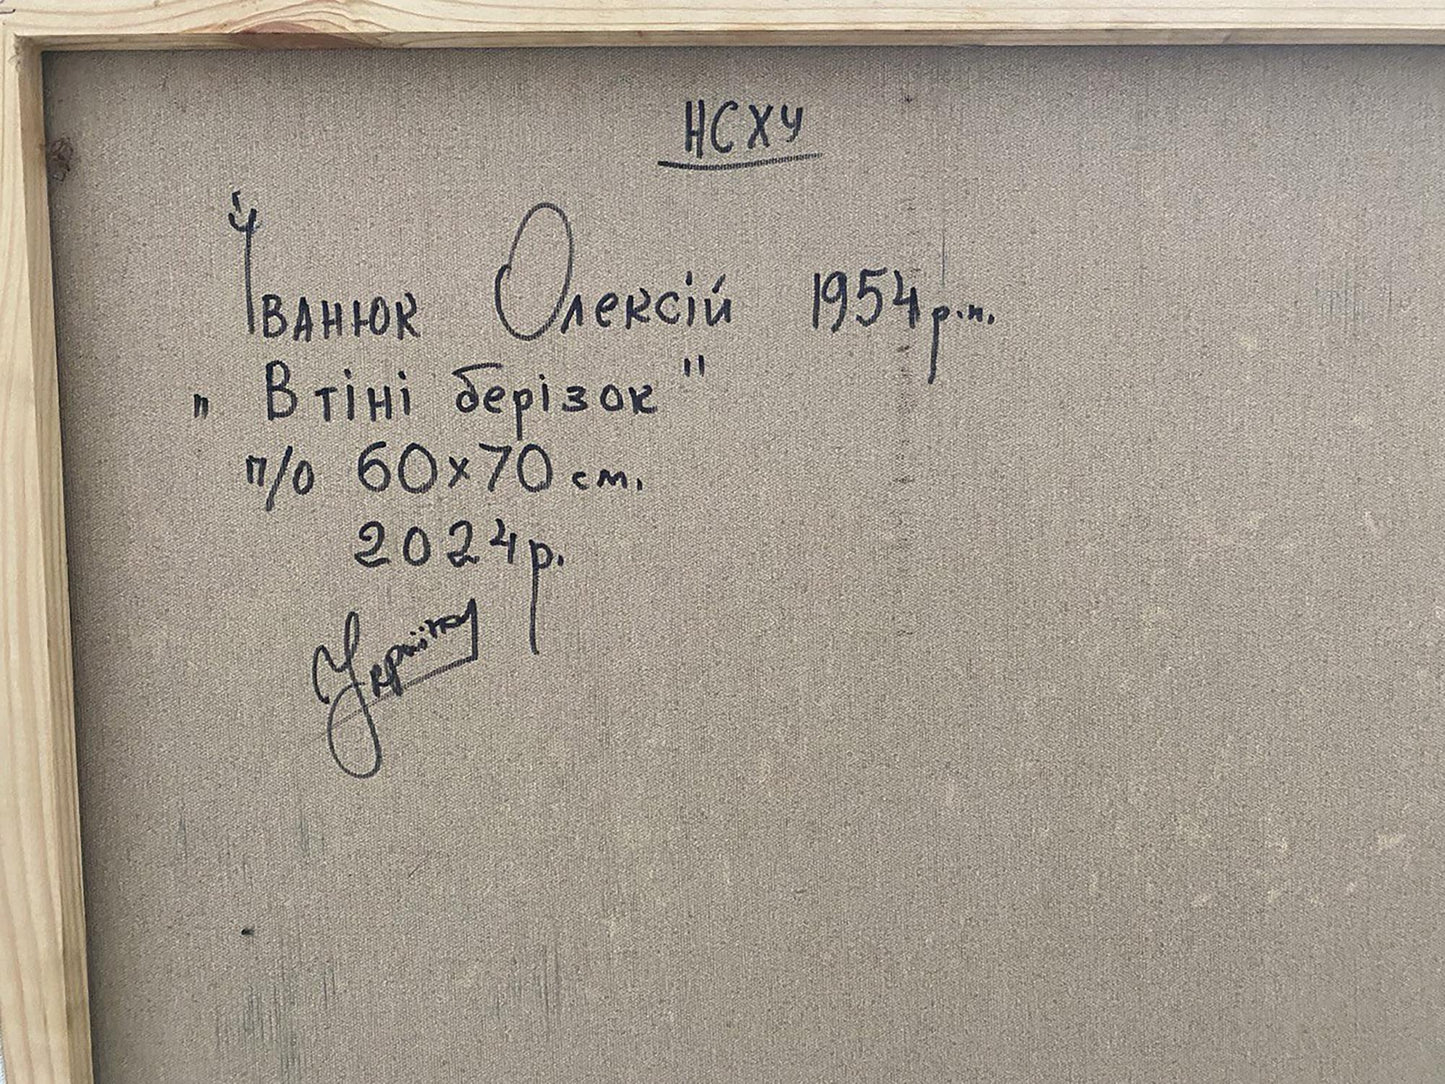 НСХУ
Іванюк Олексій 1954 р.н.
„ В тіні берізок"
п/о 60х70 см.
2024р.
Україна